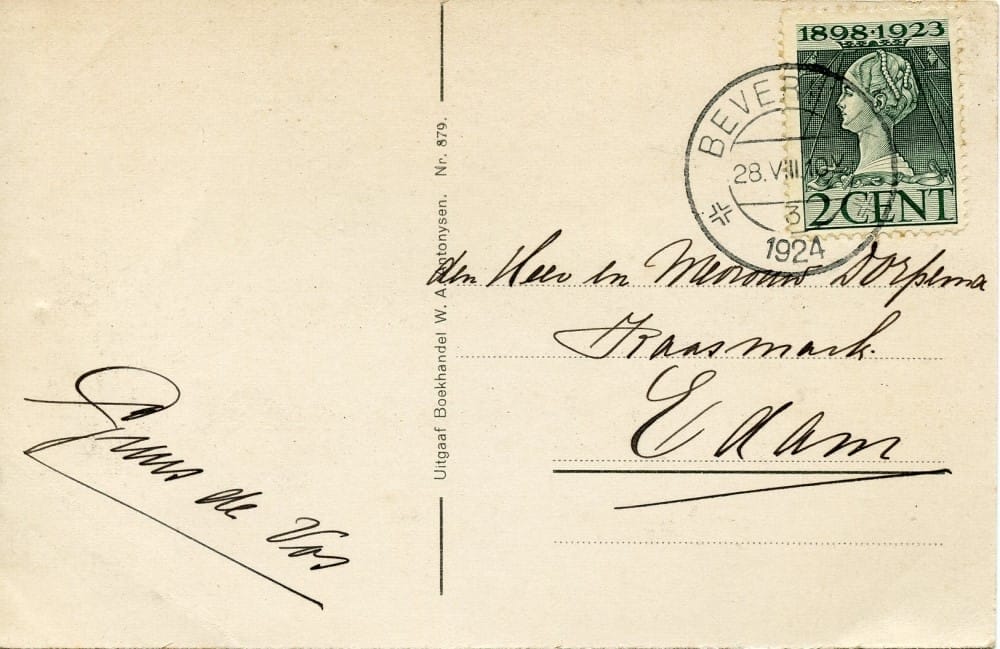 1898·1923
2 CENT
BEVER
28.VIII.10V
3
1924
den Heer en Mevrouw Dorpema
Kaasmark.
Edam
Guus de Vos
Uitgaaf Boekhandel W. A. Antonysen. Nr. 879.